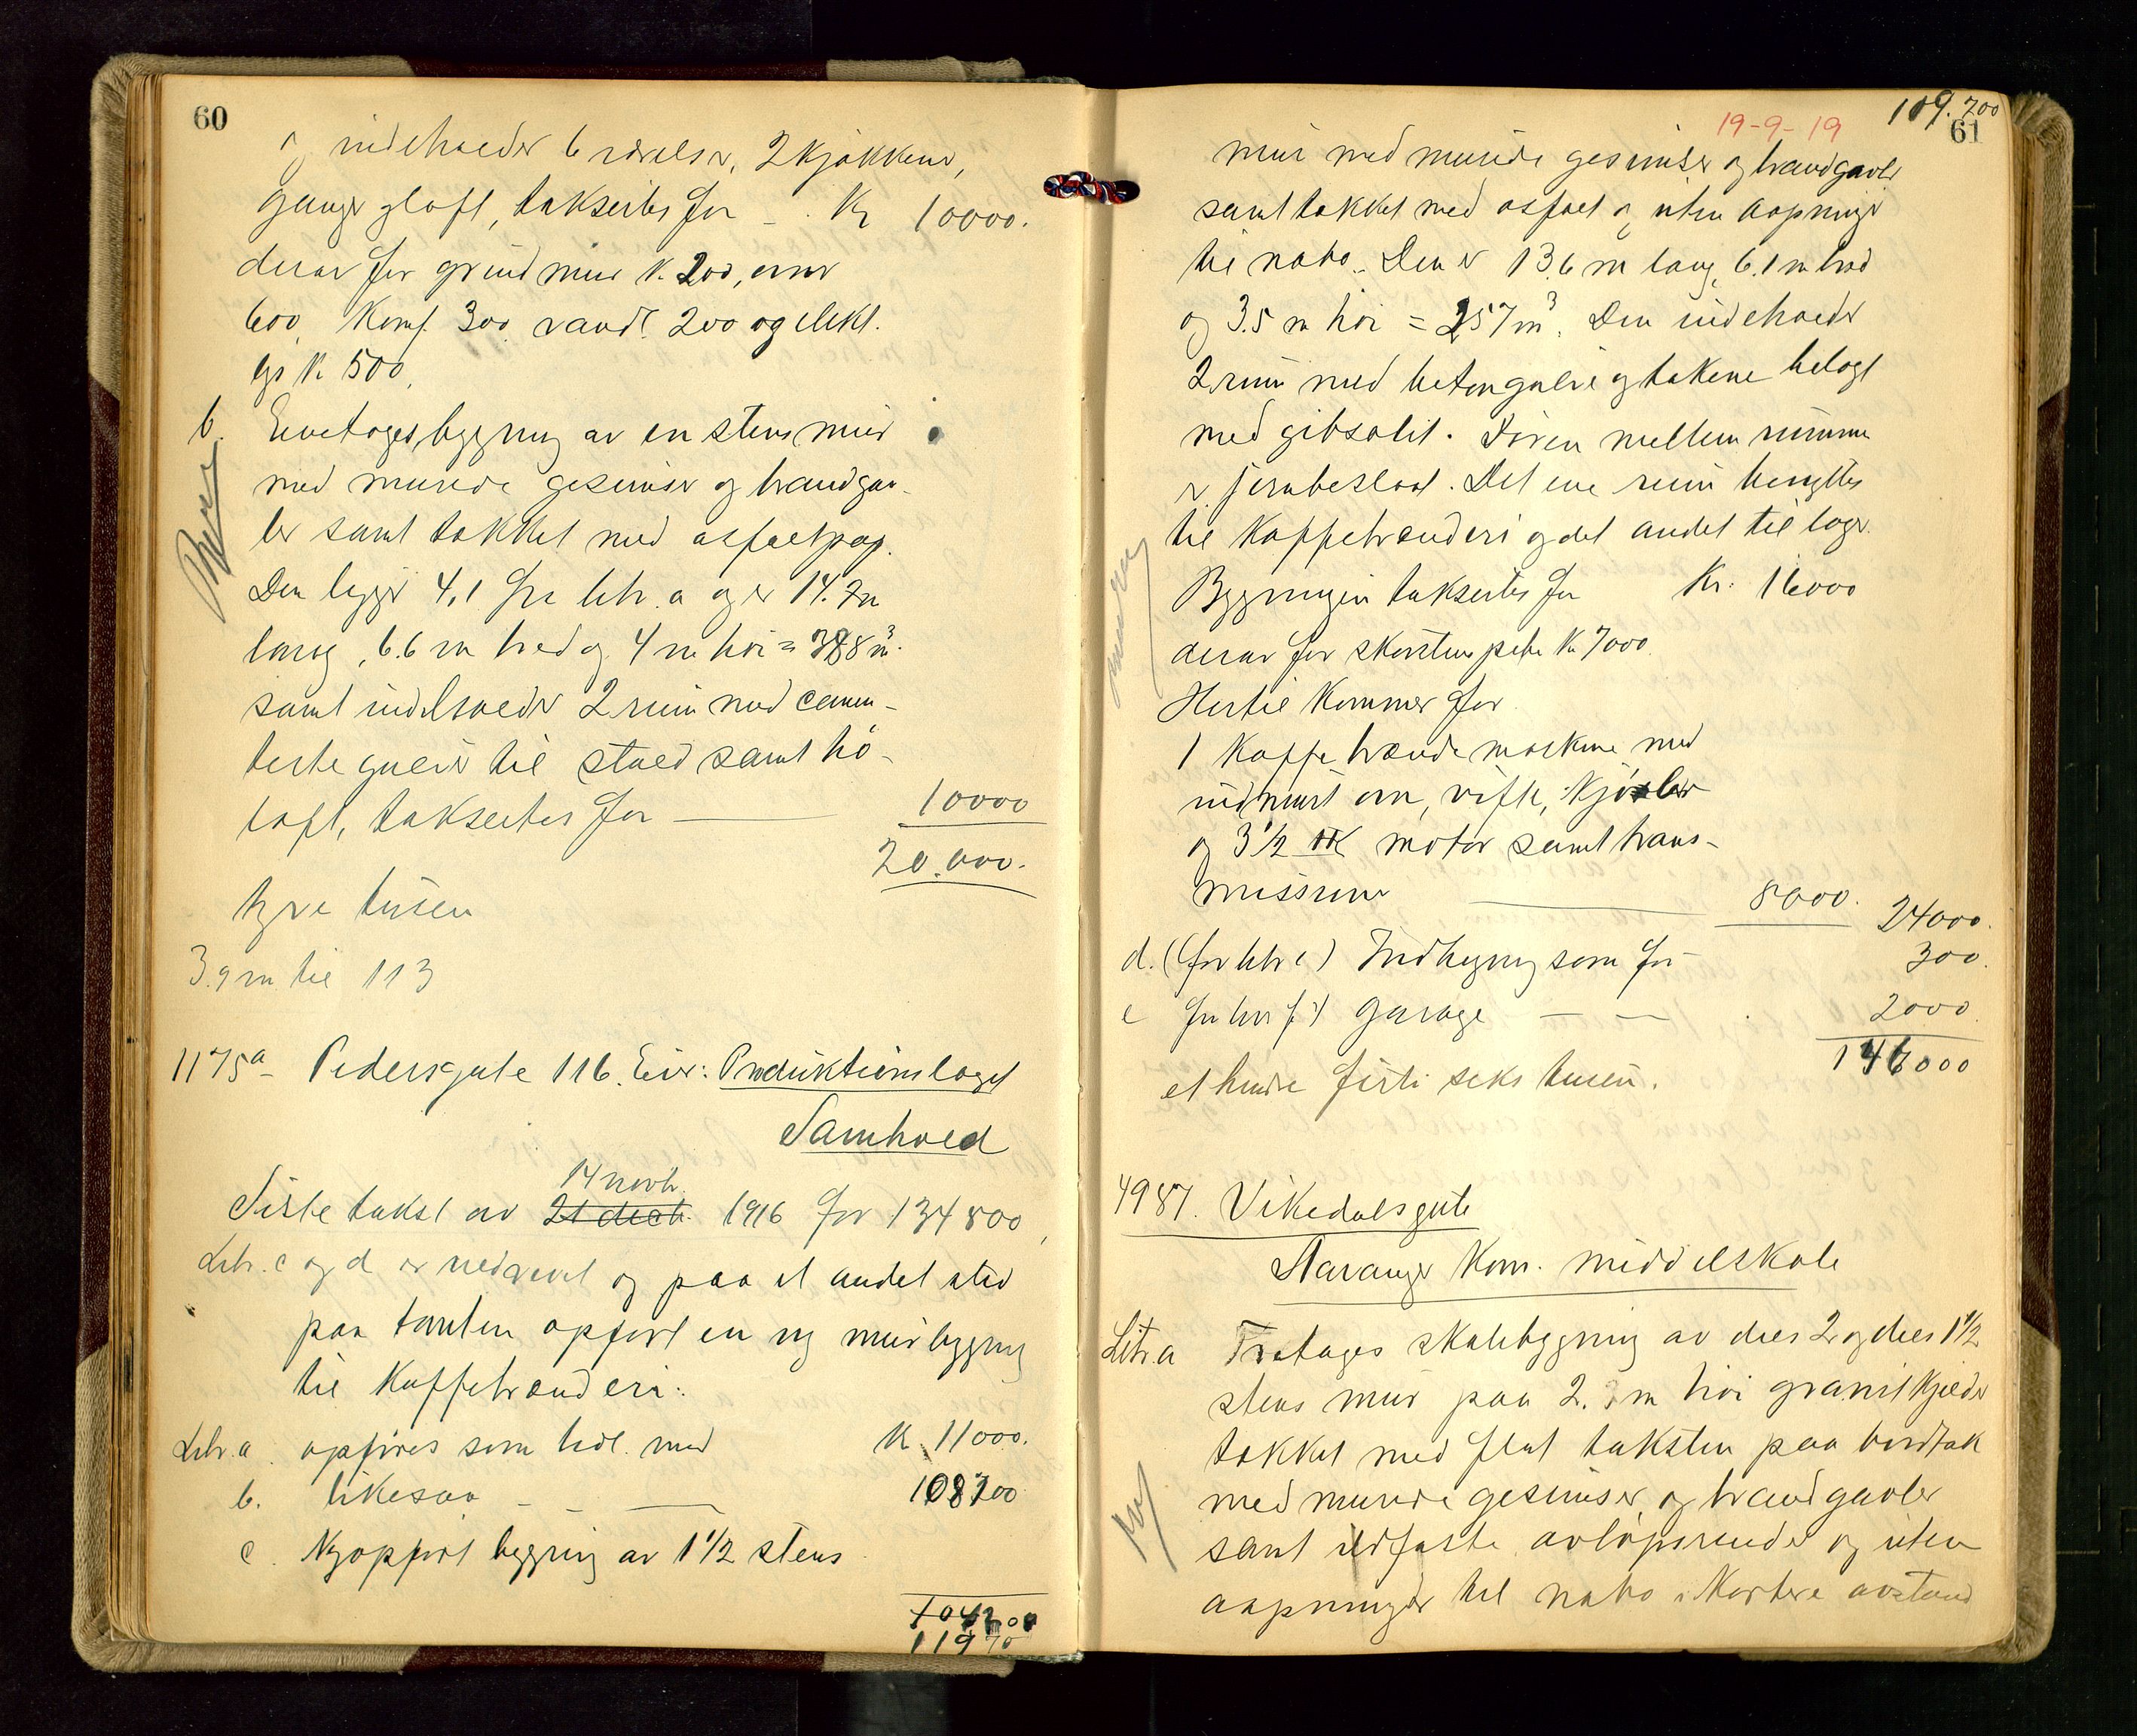 60
og indeholder 6 værelser, 2 kjøkkener,
ganger og loft, takseres for – Kr 10000.
derav for grundmur k. 200, ovner
600, Komf. 300, vandl. 200 og elekt.
lys k 500.
b. Enetages bygning av en stens mur
med murede gesimser og brandgav-
ler samt tækket med asfaltpap.
Den ligger 4,1 fra litr. a og er 14.7 m
lang, 6.6 m bred og 4 m høi = 388 m³.
samt indeholder 2 rum med cemen-
terte gulver til stald samt hø-
loft, takseres for — 10000
20.000.
tyve tusen
3.9 m til 113
1175a – Pedersgate 116. Eier: Produktionslaget
Samhold
14 novb.
Siste takst av 21 decb. 1916 for 134800,
Litr. c og d er nedrevet og paa et andet sted
paa tomten opført en ny murbygning
til Kaffebrænderi:
Litr. a. opføres som tidl. med K. 11000.
b. likesaa – – — 108700
c. Nyopført bygning av 1 1/2 stens
119 70
109.700
19-9-19
61
mur med murede gesimser og brandgavle
samt tækket med asfalt og uten aapninger
til nabo. Den er 13.6 m lang, 6.1 m bred
og 3.5 m høi = 257 m³. Den indeholder
2 rum med betongulve og takene belagt
med gibsolit. Døren mellem rummene
er jernbeslaat. Det ene rum benyttes
til Kaffebrænderi og det andet til lager.
Bygningen takseres for Kr. 16000
derav for skorstenspibe K. 7000
Hertil kommer for
1 Kaffebrændemaskine med
indmurt ovn, vifte, kjøler
og 3 1/2 HK motor samt trans-
missioner — 8000. 24000.
d. (før litr e) Indhegning som før 300.
e før litr f) Garage — — 2000.
146000
et hundre førti seks tusen.
4987. Vikedalsgate
Stavanger Kom. middelskole
Litr. a Tretages skolebygning av dels 2 og dels 1 1/2
stens mur paa 2. m høi granitkjelder
tækket med flat taksten paa bordtak
med murede gesimser og brandgavler
samt ildfaste avløpsrender og uten
aapninger til nabo i kortere avstand